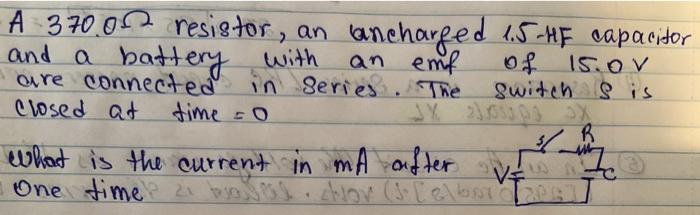 A 370.0Ω resistor, an uncharged 1.5-HF capacitor
and a battery with an emf of 15.0 V
are connected in series. The switch S is
closed at time = 0
What is the current in mA after
one time
S R
V C